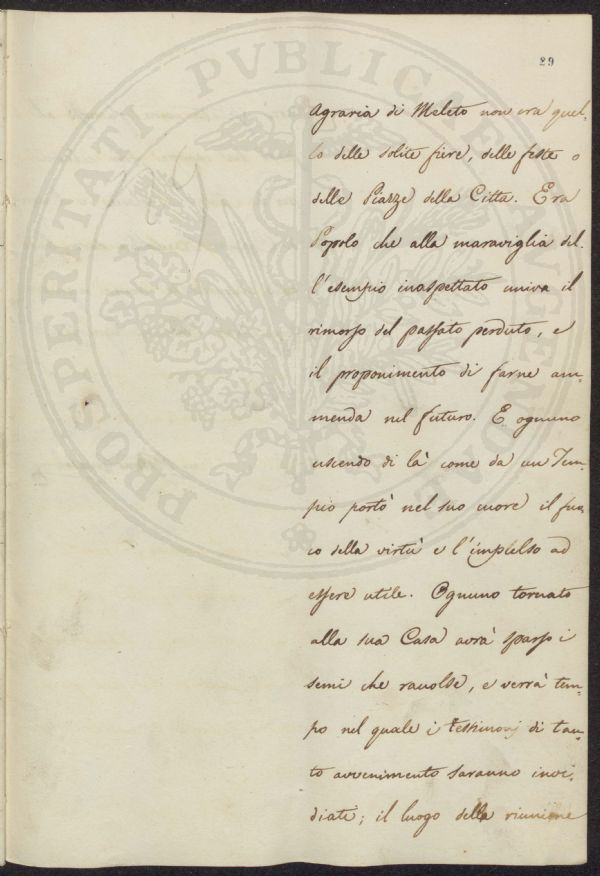 PROSPERITATI PVBLICAE AVGENDAE
29
Agraria di Meleto non era quel-
lo delle solite fiere, delle feste o
delle Piazze della Citta. Era
Popolo che alla maraviglia del-
l'esempio inaspettato univa il
rimorso del passato perduto, e
il proponimento di farne am-
menda nel futuro. E ognuno
uscendo di là come da un Tem-
pio portò nel suo cuore il fuo-
co della virtù e l'impulso ad
essere utile. Ognuno tornato
alla sua Casa avrà sparso i
semi che raccolse, e verrà tem-
po nel quale i testimonj di tan-
to avvenimento saranno invi-
diati; il luogo della riunione